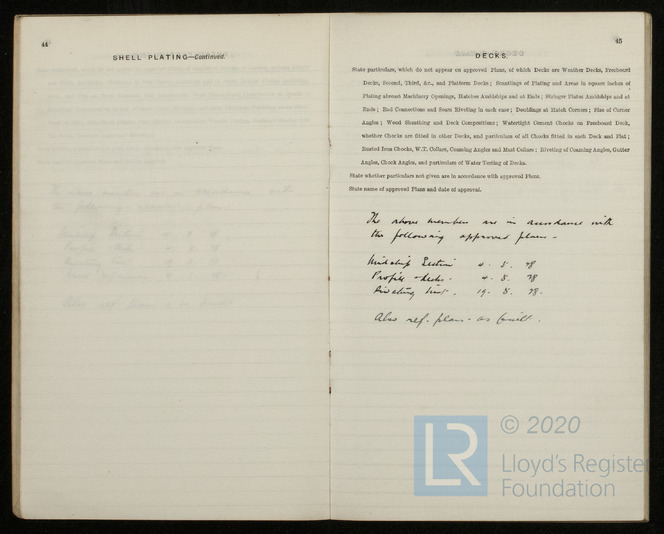 44
SHELL PLATING—Continued.
45
DECKS.
State particulars, which do not appear on approved Plans, of which Decks are Weather Decks, Freeboard
Decks, Second, Third, &c., and Platform Decks; Scantlings of Plating and Areas in square inches of
Plating abreast Machinery Openings, Hatches Amidships and at Ends; Stringer Plates Amidships and at
Ends; End Connections and Seam Riveting in each case; Doublings at Hatch Corners; Size of Corner
Angles; Wood Sheathing and Deck Compositions; Watertight Cement Chocks on Freeboard Deck,
whether Chocks are fitted in other Decks, and particulars of all Chocks fitted in each Deck and Flat;
Rusted Iron Chocks, W.T. Collars, Coaming Angles and Mast Collars; Riveting of Coaming Angles, Gutter
Angles, Chock Angles, and particulars of Water Testing of Decks.
State whether particulars not given are in accordance with approved Plans.
State name of approved Plans and date of approval.
The above member are in accordance with
the following approved plans -
Midship Section 4. 5. 28
Profile & decks. 4. 5. 28
Riveting List. 19. 5. 28.
Also ref. plan - as built.
LR
© 2020
Lloyd's Register
Foundation